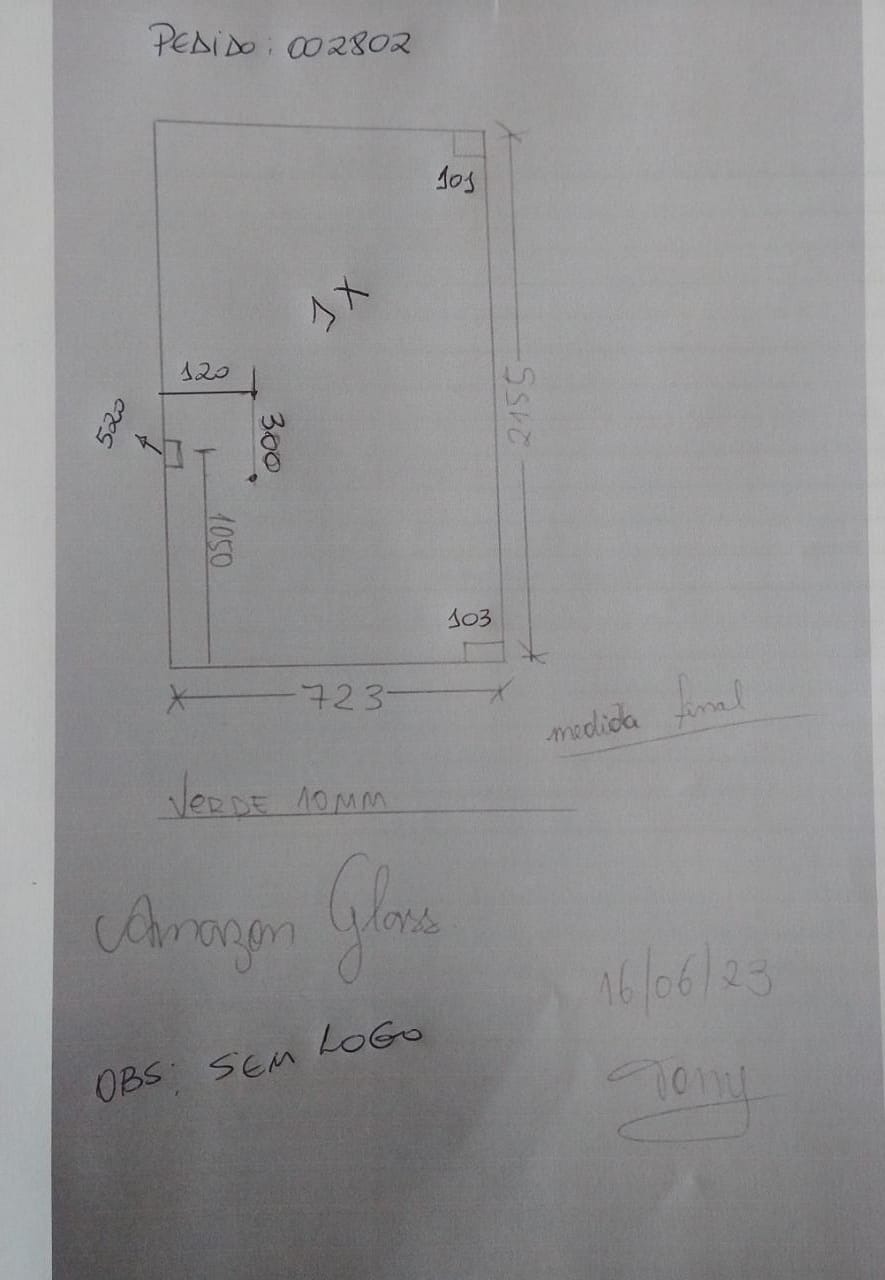 PEDIDO: 002802
101
1X
120
520
300
2155
1050
103
723
medida final
VERDE 10MM
Amazon Glass
16/06/23
OBS: SEM LOGO
Tony